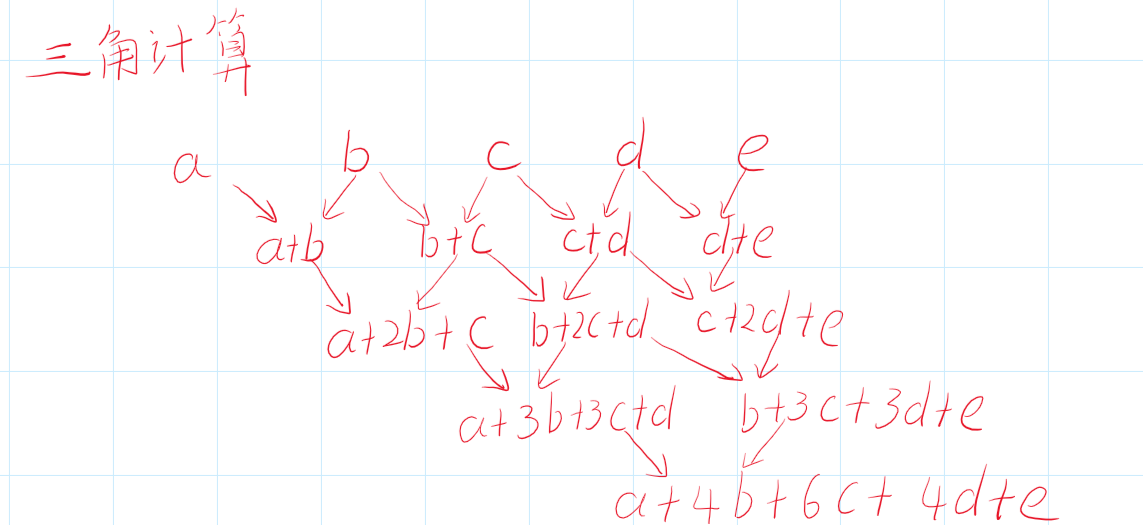 三角计算
a b c d e
a+b b+c c+d d+e
a+2b+c b+2c+d c+2d+e
a+3b+3c+d b+3c+3d+e
a+4b+6c+4d+e